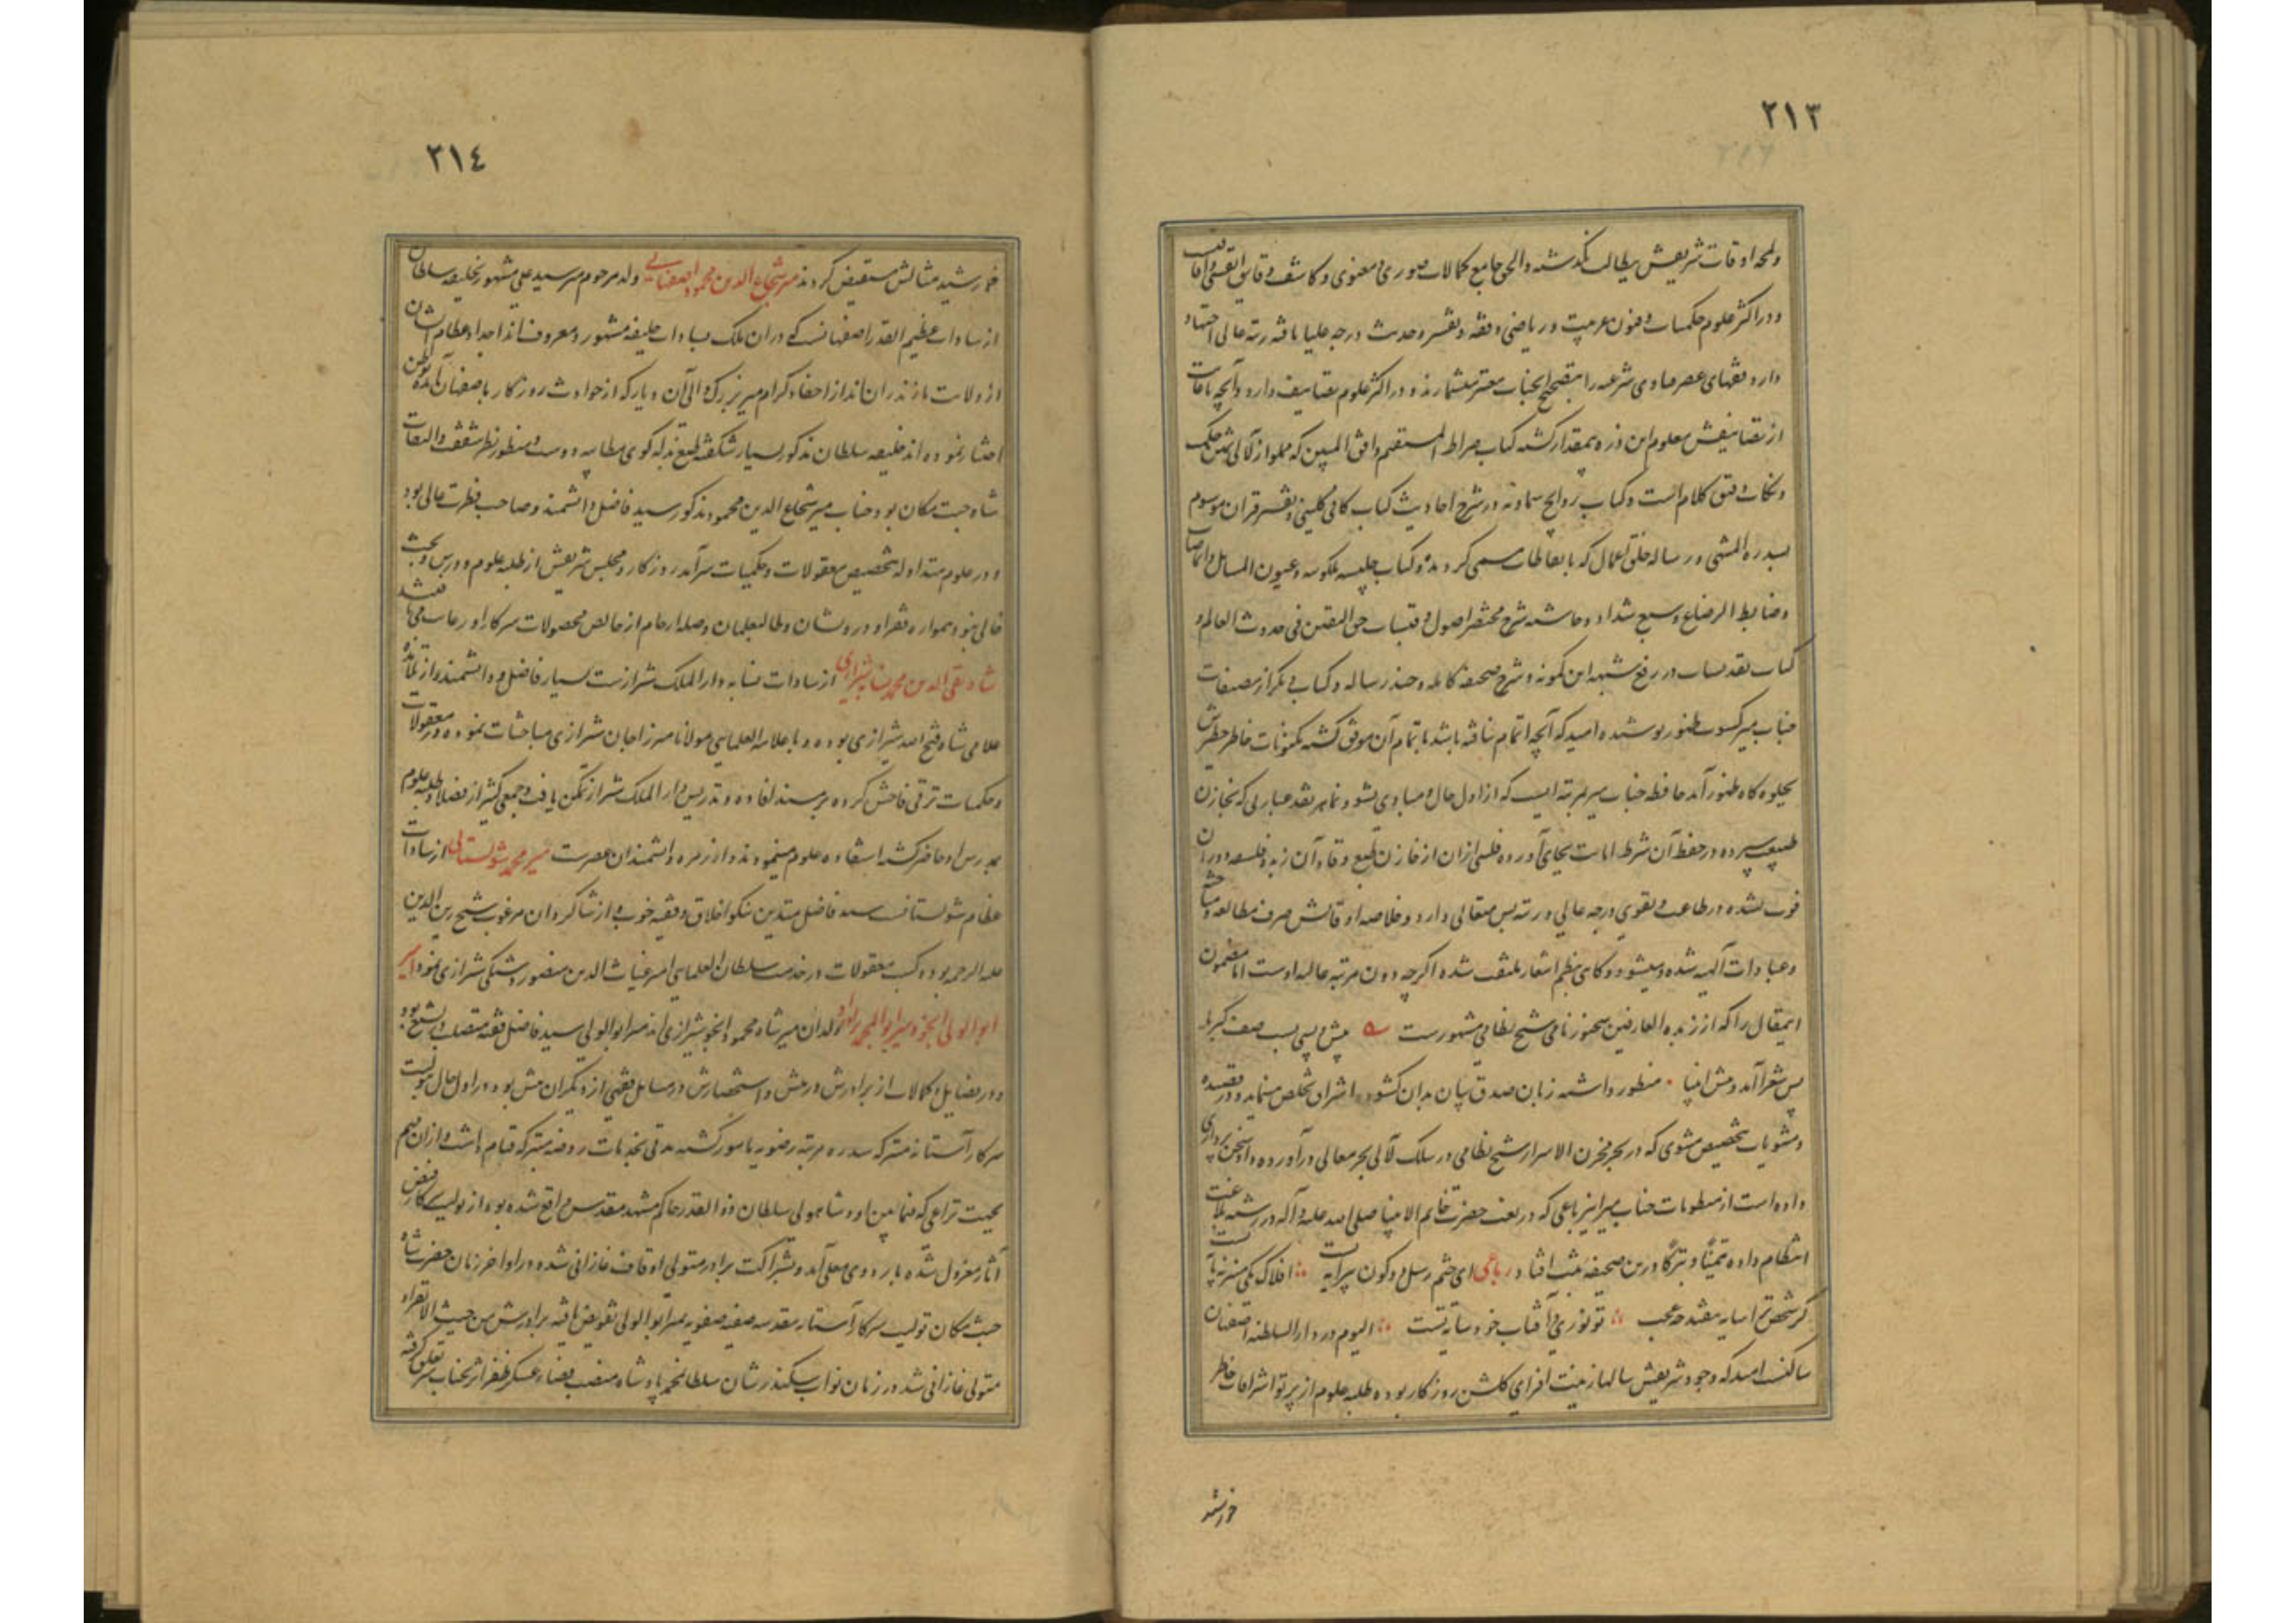 ٢١٣
ولمحه اوقات شریفش ببطالت نگذشته والحق جامع کمالات صوری و معنوی و کاشف دقایق انفسی و آفاقی
و در اکثر علوم حکمیات و فنون عربیت و ریاضی و فقه و تفسیر و حدیث درجه علیا یافته رتبه عالی اجتهاد
دارد و فقهای عصر فتاوی شرعیه را بتصحیح آنجناب معتبر میشمارند و در اکثر علوم تصانیف دارد و آنچه یافت
از تصانیفش معلوم این ذره بیمقدار گشته کتاب صراط المستقیم و افق المبین که مملو از لآلی ثمین حکمت
و نکات دقیق کلام است و کتاب رواشح سماویه در شرح احادیث کتاب کافی کلینی و تفسیر قران موسوم
بسدرة المنتهی و رساله خلق اعمال که بایقاظات مسمی گردیده و کتاب خلسه ملکوتیه و عیون المسایل و ایماضات
و ضابط الرضاع و سبع شداد و حاشیه شرح مختصر اصول و قبسات حق الیقین فی حدوث العالم و
کتاب تقدیسات در رفع شبهه ابن کمونه و شرح صحیفه کامله و چند رساله و کتابی دیگر از مصنفات
جناب میر کسوت ظهور پوشیده امید که آنچه اتمام نیافته باشد باتمام آن موفق گشته مکنونات خاطر خطیرش
بجلوه گاه ظهور آید حافظه جناب میر بمرتبه ایست که از اول حال و مبادی نشو و نما هر نقد عباراتی که بخازن
طبیعت سپرده در حفظ آن شرط امانت بجای آورده فلسی ازان از خازن طبع وقاد آن زبده فلسفه دوران
فوت نشده در طاعت و تقوی درجه عالی و رتبه بس متعالی دارد و خلاصه اوقاتش صرف مطالعه و مباحثه
و عبادات الهیه شده و میشود و گاهی بنظم اشعار ملتفت شده اگرچه دون مرتبه عالیه اوست اما مضمون
اینمقال را که از زبده العارفین سخنور نامی شیخ نظامی مشهورست پیش و پسی بست صف کبریا
پس شعرا آمد و پیش انبیا منظور داشته زبان صدق بیان بدان گشوده اشراق تخلص مینماید و در قصیده
و مثنویات بتخصیص مثنوی که در بحر مخزن الاسرار شیخ نظامی در سلک لآلی بحر معانی درآورده داد سخن پردازی
داده است از منظومات جناب میر این رباعی که در نعت حضرت خاتم الانبیا صلی الله علیه و آله در رشته بلاغت
انتظام داده تیمنا و تبرکا درین صحیفه ثبت افتاد رباعی ای ختم رسل دو کون پیرایه تست افلاک یکی منبر نه پایه تست
گر شخص ترا سایه نیفتد چه عجب تو نوری و آفتاب خود سایه تست الیوم در دار السلطنه اصفهان
ساکنست امید که وجود شریفش سالها زینت افزای گلشن روزگار بوده طلبه علوم از پرتو اشراقات خاطر
خورشید
٢١٤
خورشید مثالش مستفیض گردند میر شجاع الدین محمود اصفهانی ولد مرحوم میر سید علی مشهور بخلیفه سلطان
از سادات عظیم القدر اصفهانست که در ان ملک بسادات خلیفه مشهور و معروف اند اجداد عظام ایشان
از ولایت مازندران اند از احفاد کرام میر بزرگ والی آن دیار که از حوادث روزگار باصفهان آمده توطن
اختیار نموده اند خلیفه سلطان مذکور بسیار شکفته طبع بذله گوی مطایبه دوست و منظور نظر شفقت و التفات
شاه جنت مکان بود جناب میر شجاع الدین محمود مذکور سید فاضل دانشمند و صاحب فطرت عالی بود
و در علوم متداوله بتخصیص معقولات و حکمیات سرآمد روزگار و مجلس شریفش از طلبه علوم و درس و بحث
خالی نبود همواره فقرا و درویشان و طالبعلمان وصله ارحام از خالص محصولات سرکار او رعایت می یافتند
شاه تقی الدین محمد نسابه شیرازی از سادات نسابه دار الملک شیرازست بسیار فاضل و دانشمند و از تلامذه
علامی شاه فتح الله شیرازی بوده و با علامه العلمایی مولانا میرزا جان شیرازی مباحثات نموده در معقولات
و حکمیات ترقی فاحش کرده بر مسند افاده و تدریس دار الملک شیراز تمکن یافت و جمعی کثیر از فضلا و طلبه علوم
بمدرس او حاضر گشته استفاده علوم مینمودند و از زمره دانشمندان عصرست میر محمد شولستانی از سادات
عظام شولستانست سید فاضل متدین نیکو اخلاق و فقیه خوب و از شاگردان مرغوب شیخ زین الدین
علیه الرحمه بوده کسب معقولات در خدمت سلطان العلمایی امیر غیاث الدین منصور دشتکی شیرازی نمود امیر
ابو الولی انجو و میر ابو المحمد برادر او ولدان میر شاه محمود انجو شیرازی اند میر ابو الولی سید فاضل فقیه متصلب در تشیع بود
و در فضایل و کمالات از برادرش در پیش و استحضارش در مسایل فقهی از دیگران بیش بود در اول حال تولیت
سرکار آستانه متبرکه سدره مرتبه رضویه مامور گشته مدتی بخدمات روضه متبرکه قیام داشت و ازان مهم
بجهت نزاعی که فیمابین او و شاهولی سلطان ذو القدر حاکم مشهد مقدس واقع شده بود از تولیت سرکار فیض
آثار معزول شده باردوی معلی آمد و بشراکت برادر متولی اوقاف غازانی شده در اواخر زمان حضرت شاه
جنت مکان تولیت سرکار آستانه مقدسه صفیه صفویه بمیر ابو الولی تفویض یافته برادرش من حیث الانفراد
متولی غازانی شد در زمان نواب سکندرشان سلطان محمد پادشاه منصب قضاء عسکر ظفر اثر بجناب میر تعلق گرفته